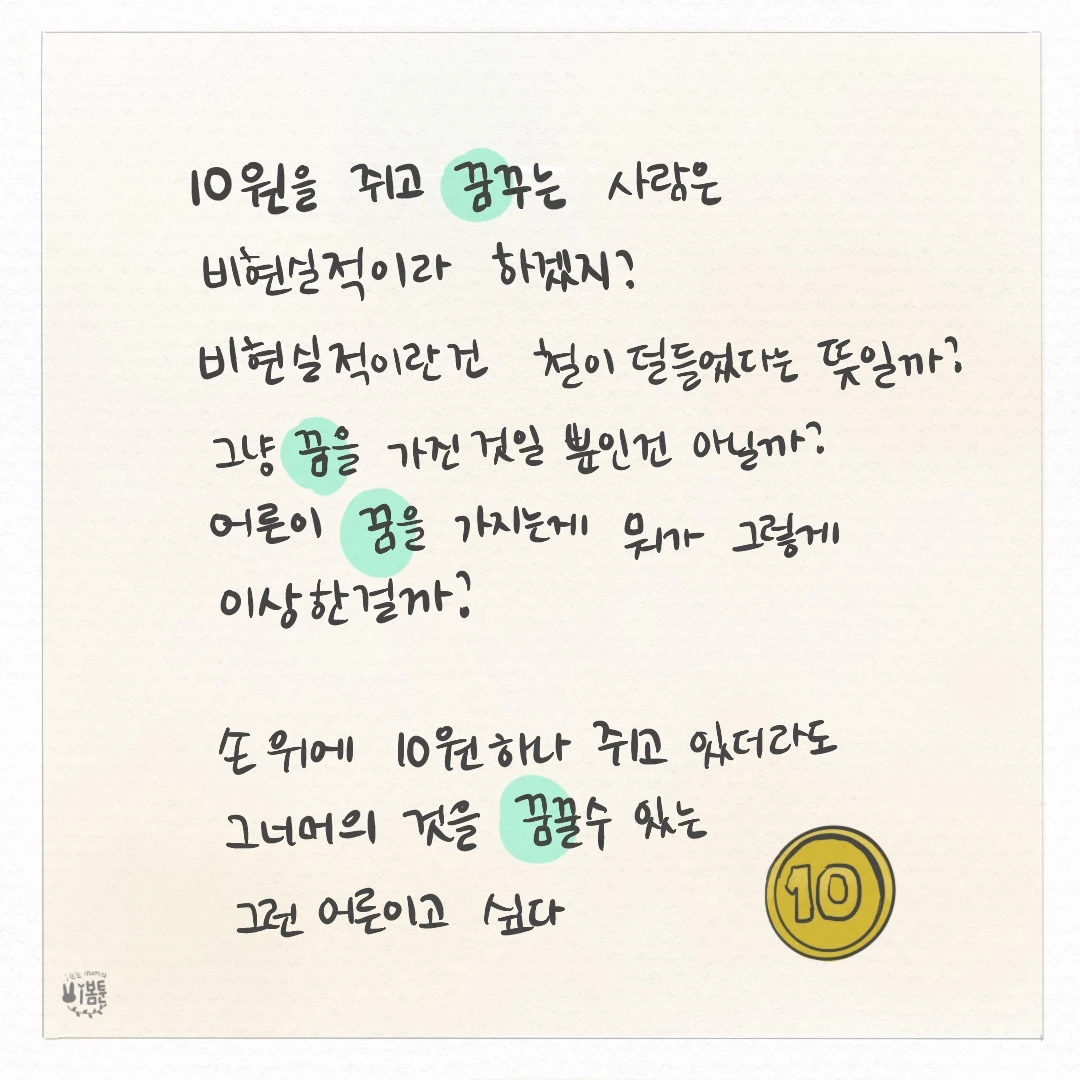 10원을 쥐고 꿈꾸는 사람은
비현실적이라 하겠지?
비현실적이란건 철이 덜들었다는 뜻일까?
그냥 꿈을 가진 것일 뿐인건 아닐까?
어른이 꿈을 가지는게 뭐가 그렇게
이상한걸까?
손 위에 10원하나 쥐고 있더라도
그너머의 것을 꿈꿀수 있는
그런 어른이고 싶다
10
봄툰